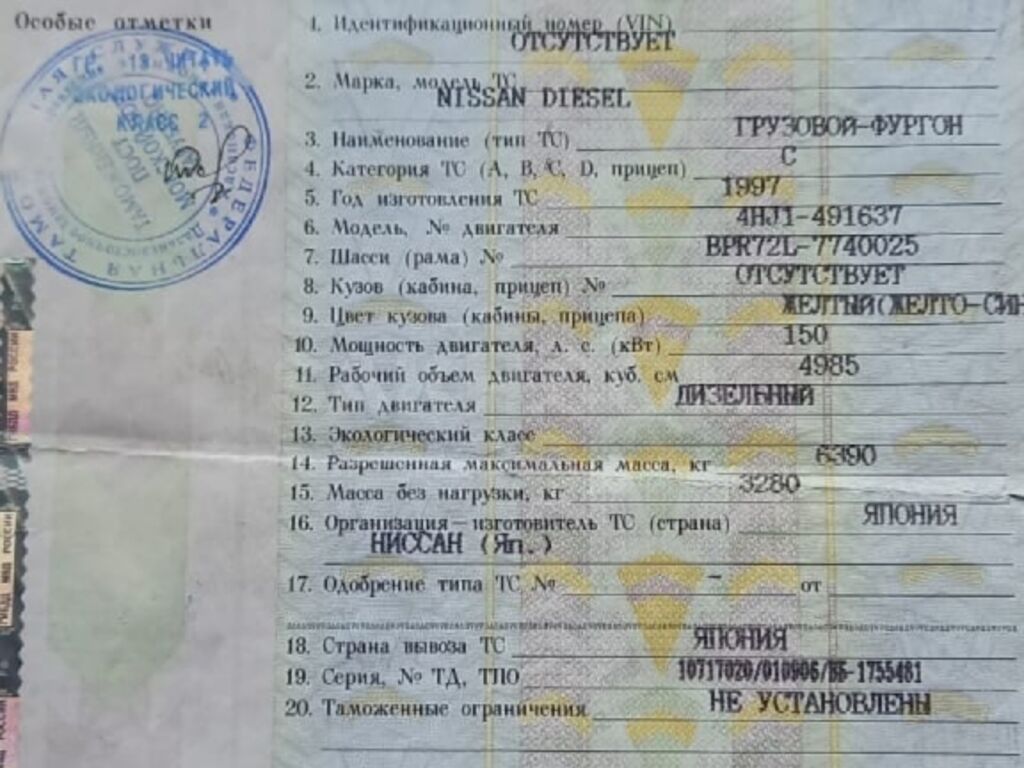 Особые отметки
ГР. 13 ЧИТАТЬ
ЭКОЛОГИЧЕСКИЙ
КЛАСС 2
1. Идентификационный номер (VIN)
ОТСУТСТВУЕТ
2. Марка, модель ТС
NISSAN DIESEL
3. Наименование (тип ТС) ГРУЗОВОЙ-ФУРГОН
4. Категория ТС (А, В, С, D, прицеп) С
5. Год изготовления ТС 1997
6. Модель, № двигателя 4HJ1-491637
7. Шасси (рама) № BPR72L-7740025
8. Кузов (кабина, прицеп) № ОТСУТСТВУЕТ
9. Цвет кузова (кабины, прицепа) ЖЕЛТЫЙ(ЖЕЛТО-СИН
10. Мощность двигателя, л. с. (кВт) 150
11. Рабочий объем двигателя, куб. см 4985
12. Тип двигателя ДИЗЕЛЬНЫЙ
13. Экологический класс
14. Разрешенная максимальная масса, кг 6390
15. Масса без нагрузки, кг 3280
16. Организация–изготовитель ТС (страна) ЯПОНИЯ
НИССАН (Яп.)
17. Одобрение типа ТС № - от
18. Страна вывоза ТС ЯПОНИЯ
19. Серия, № ТД, ТПО 10717020/010906/ВБ-1755481
20. Таможенные ограничения НЕ УСТАНОВЛЕНЫ